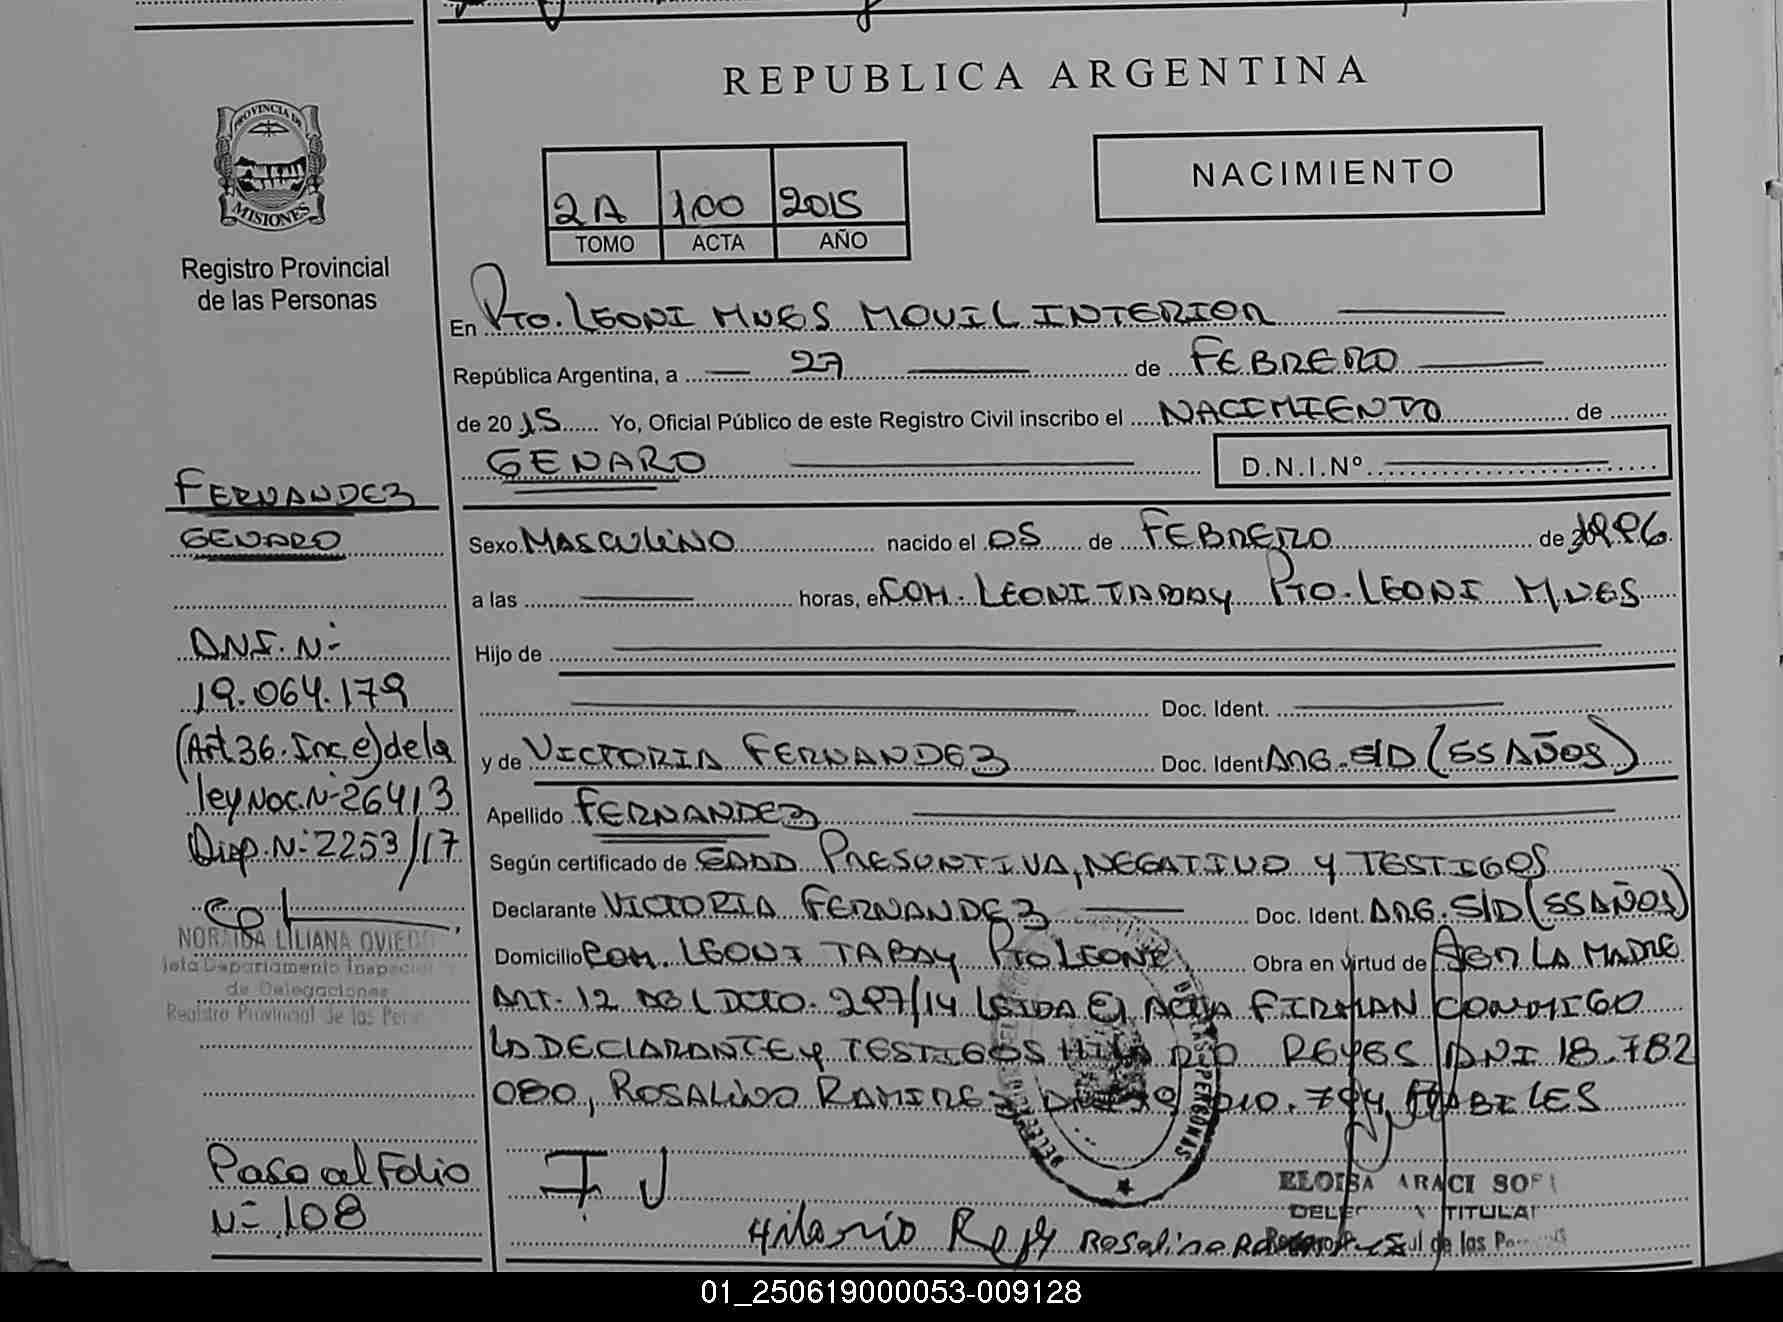 REPUBLICA ARGENTINA
PROVINCIA DE
MISIONES
Registro Provincial
de las Personas
NACIMIENTO
2A 100 2015
TOMO ACTA AÑO
En Pto. LEONI MNES MOVIL INTERIOR
República Argentina, a 27 de FEBRERO
de 2015 Yo, Oficial Público de este Registro Civil inscribo el NACIMIENTO de
GENARO D.N.I.Nº
FERNANDEZ
GENARO
DNI. Nº
19.064.179
(Art 36. Inc. e) de la
ley Nac. Nº 26413
Disp. Nº 2253/17
NORAIDA LILIANA OVIEDO
Jefa Departamento Inspección
de Delegaciones
Registro Provincial de las Pers
Paso al Folio
Nº 108
Sexo MASCULINO nacido el 05 de FEBRERO de 1996
a las horas, en COM. LEONI TABAY Pto. LEONI MNES
Hijo de
Doc. Ident.
y de VICTORIA FERNANDEZ Doc. Ident ARG. S/D (55 AÑOS)
Apellido FERNANDEZ
Según certificado de EDAD PRESUNTIVA, NEGATIVO Y TESTIGOS
Declarante VICTORIA FERNANDEZ Doc. Ident. ARG. S/D (55 AÑOS)
Domicilio COM. LEONI TABAY Pto LEONI Obra en virtud de SER LA MADRE
ART. 12 DEL DCTO. 297/14 LEIDA EL ACTA FIRMAN CONMIGO
LA DECLARANTE Y TESTIGOS HILARIO REYES DNI 18.782
080, ROSALINO RAMIREZ HABILES
Hilario Rey Rosalino
ELOISA ARACI
TITULAR
de las
01_250619000053-009128